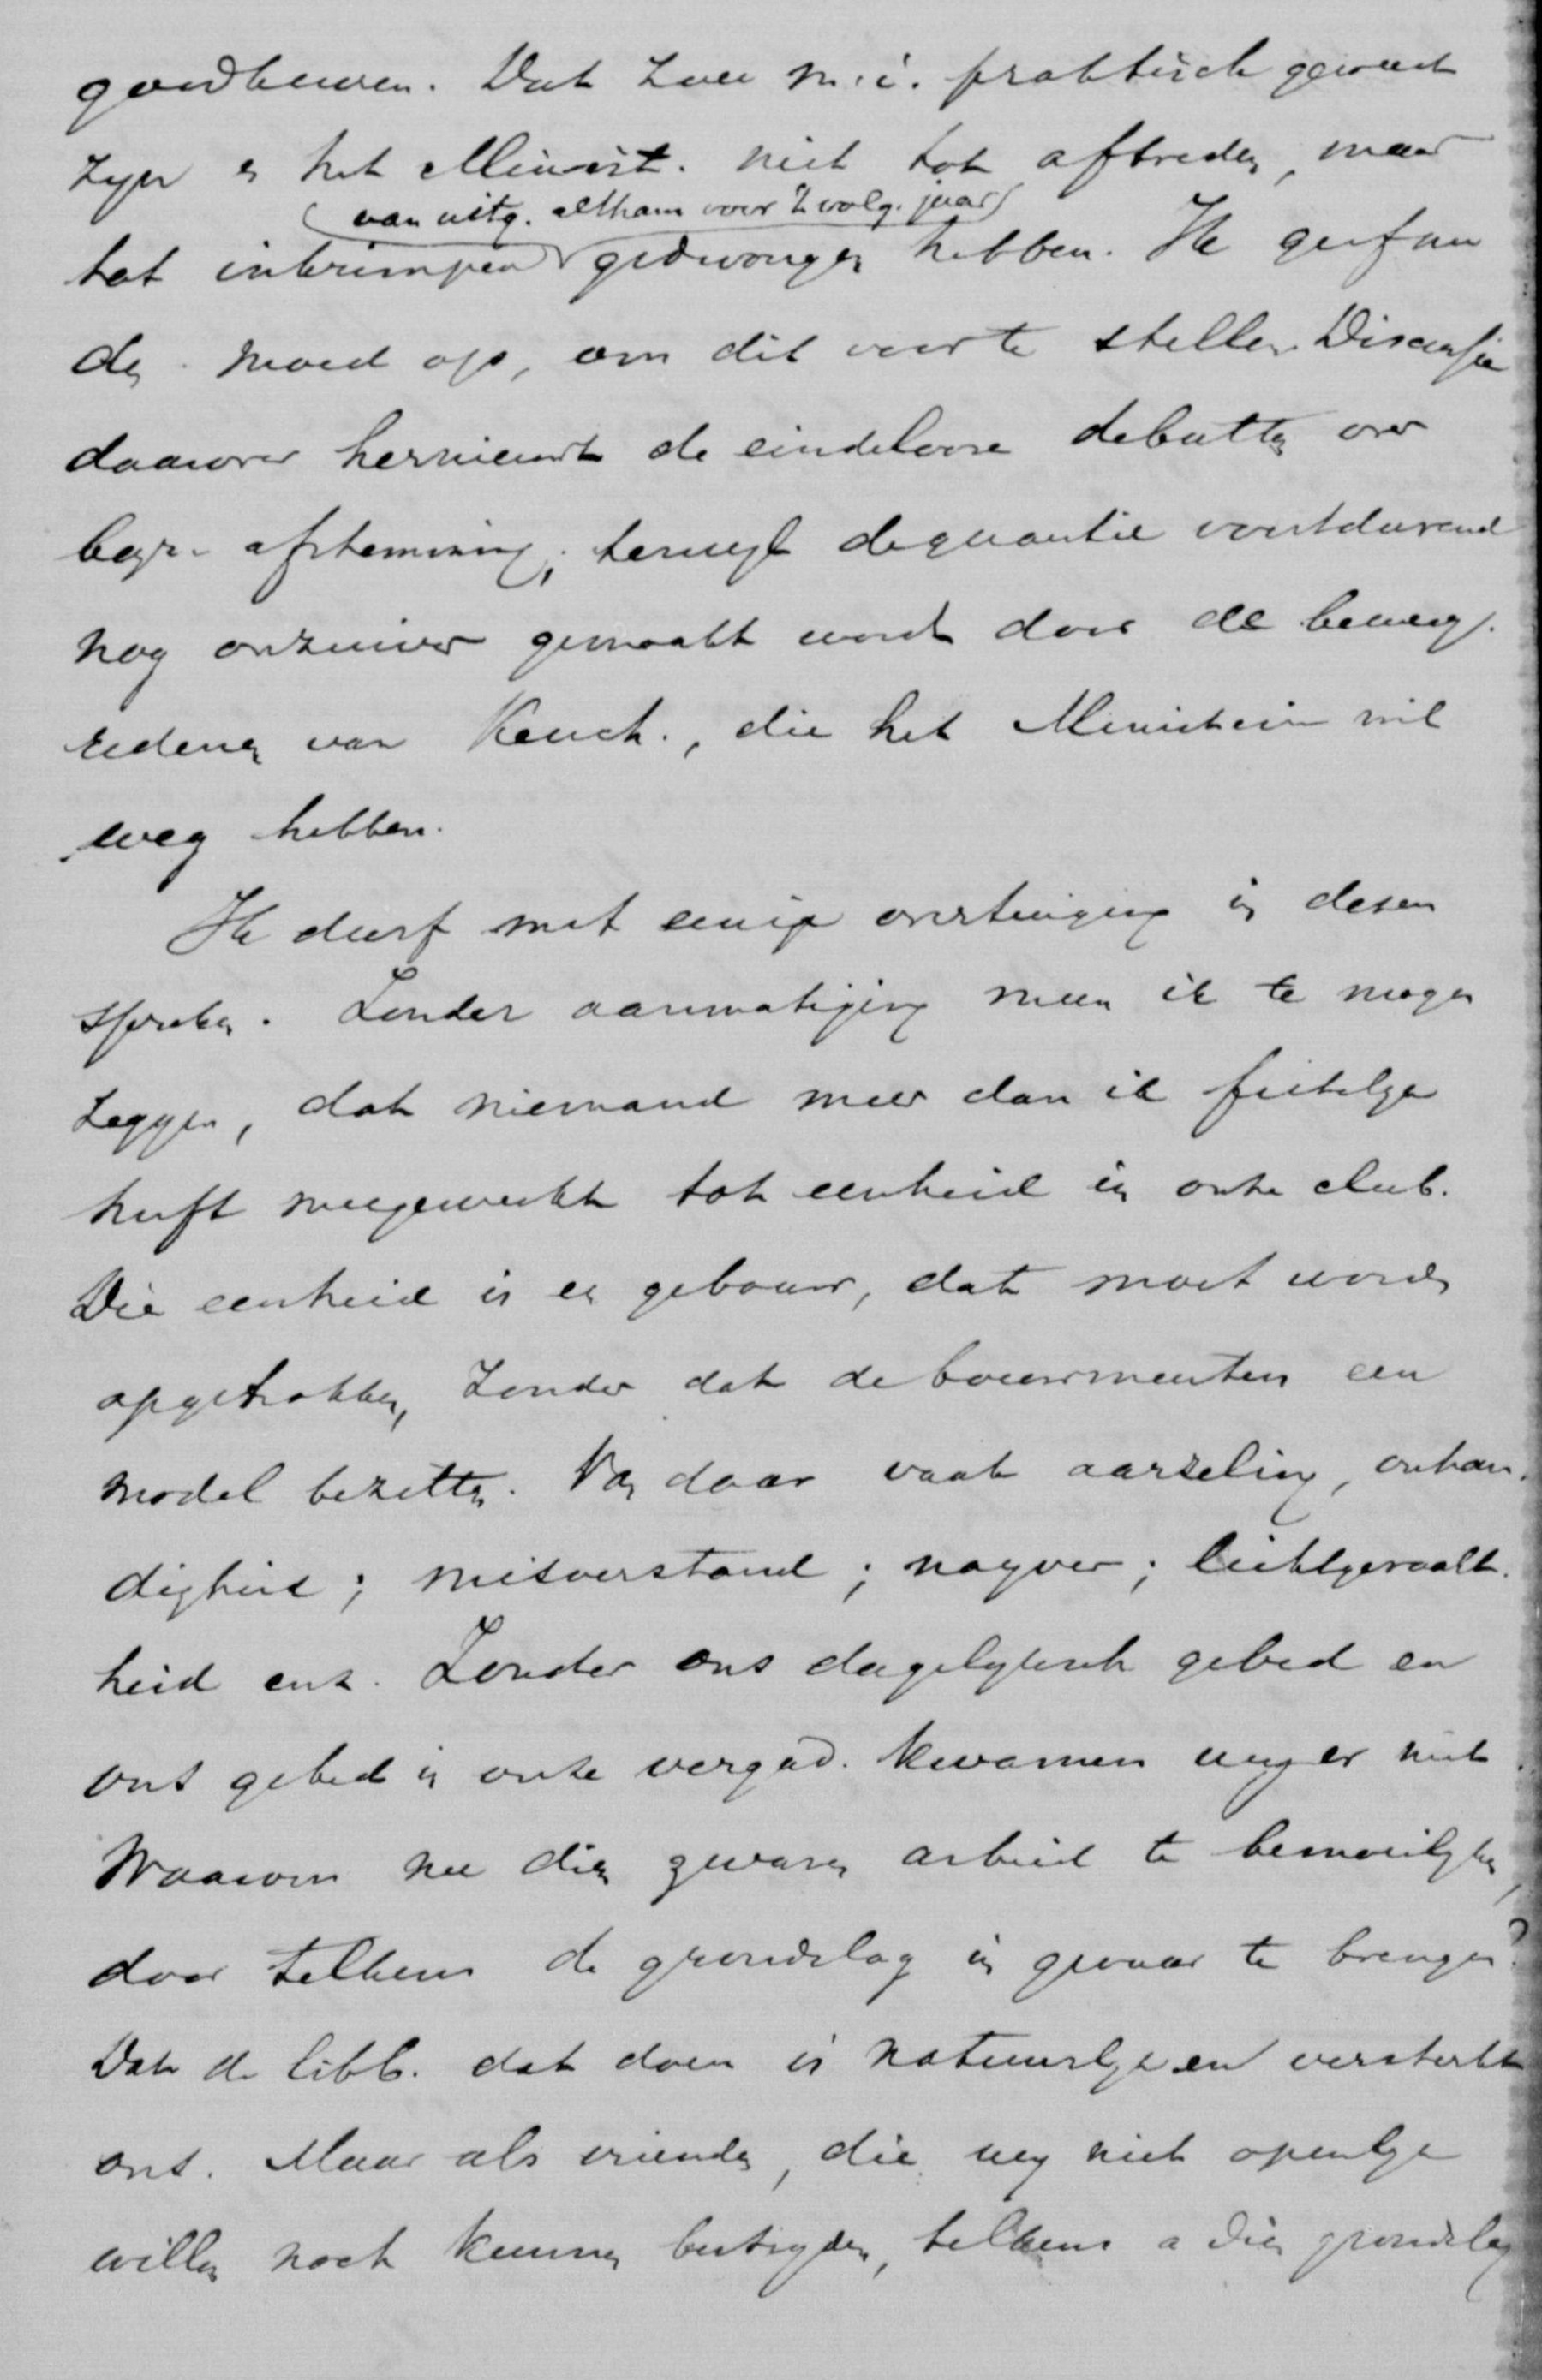 goedkeuren. Dat zou m.i. praktisch geweest
zijn en het Minist. niet tot aftreden, maar
(van uitg. althans voor 't volg. jaar)
tot inkrimpen gedwongen hebben. Ik geef nu
den moed op, om dit voor te stellen. Discussie
daarover hernieuwt de eindelooze debatten over
begr. afstemming; terwijl de quaestie voortdurend
nog onzuiver gemaakt wordt door de beweeg-
redenen van Keuch., die het Ministerie wil
weg hebben.
Ik durf met eenige overtuiging in dezen
spreken. Zonder aanmatiging meen ik te mogen
zeggen, dat niemand meer dan ik feitelijk
heeft meegewerkt tot eenheid in onze club.
Die eenheid is een gebouw, dat moet worden
opgetrokken, zonder dat de bouwmeesters een
model bezitten. Van daar vaak aarzeling, onhan-
digheid; misverstand; nayver; lichtgeraakt-
heid enz. Zonder ons dagelyksch gebed en
ons gebed in onze vergad. kwamen wy er niet.
Waarom nu dien zwaren arbeid te bemoeilyken,
door telkens de grondslag in gevaar te brengen?
Dat de libb. dat doen is natuurlyk en versterkt
ons. Maar als vrienden, die wy niet openlyk
willen noch kunnen bestryden, telkens a dien grondslag